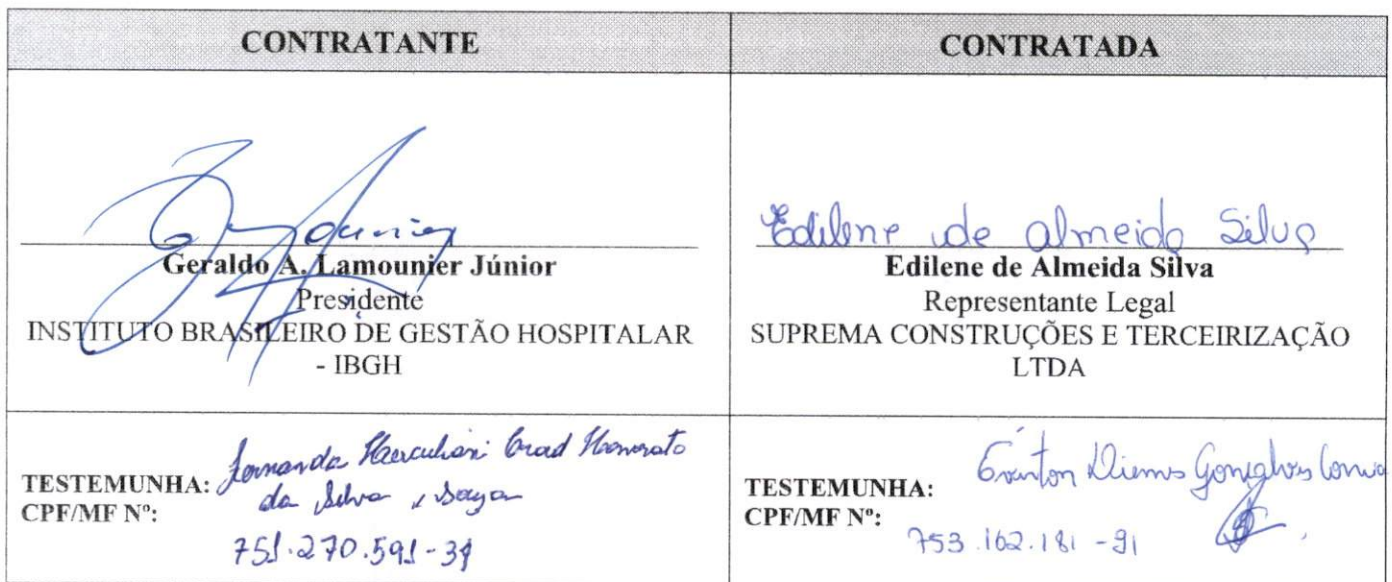 CONTRATANTE
CONTRATADA
Geraldo A. Lamounier Júnior
Presidente
INSTITUTO BRASILEIRO DE GESTÃO HOSPITALAR
- IBGH
Edilene de Almeida Silva
Edilene de Almeida Silva
Representante Legal
SUPREMA CONSTRUÇÕES E TERCEIRIZAÇÃO
LTDA
TESTEMUNHA: Fernanda
da Silva
CPF/MF Nº:
751.270.591-34
TESTEMUNHA: Gonçalves
CPF/MF Nº:
753.162.181-91